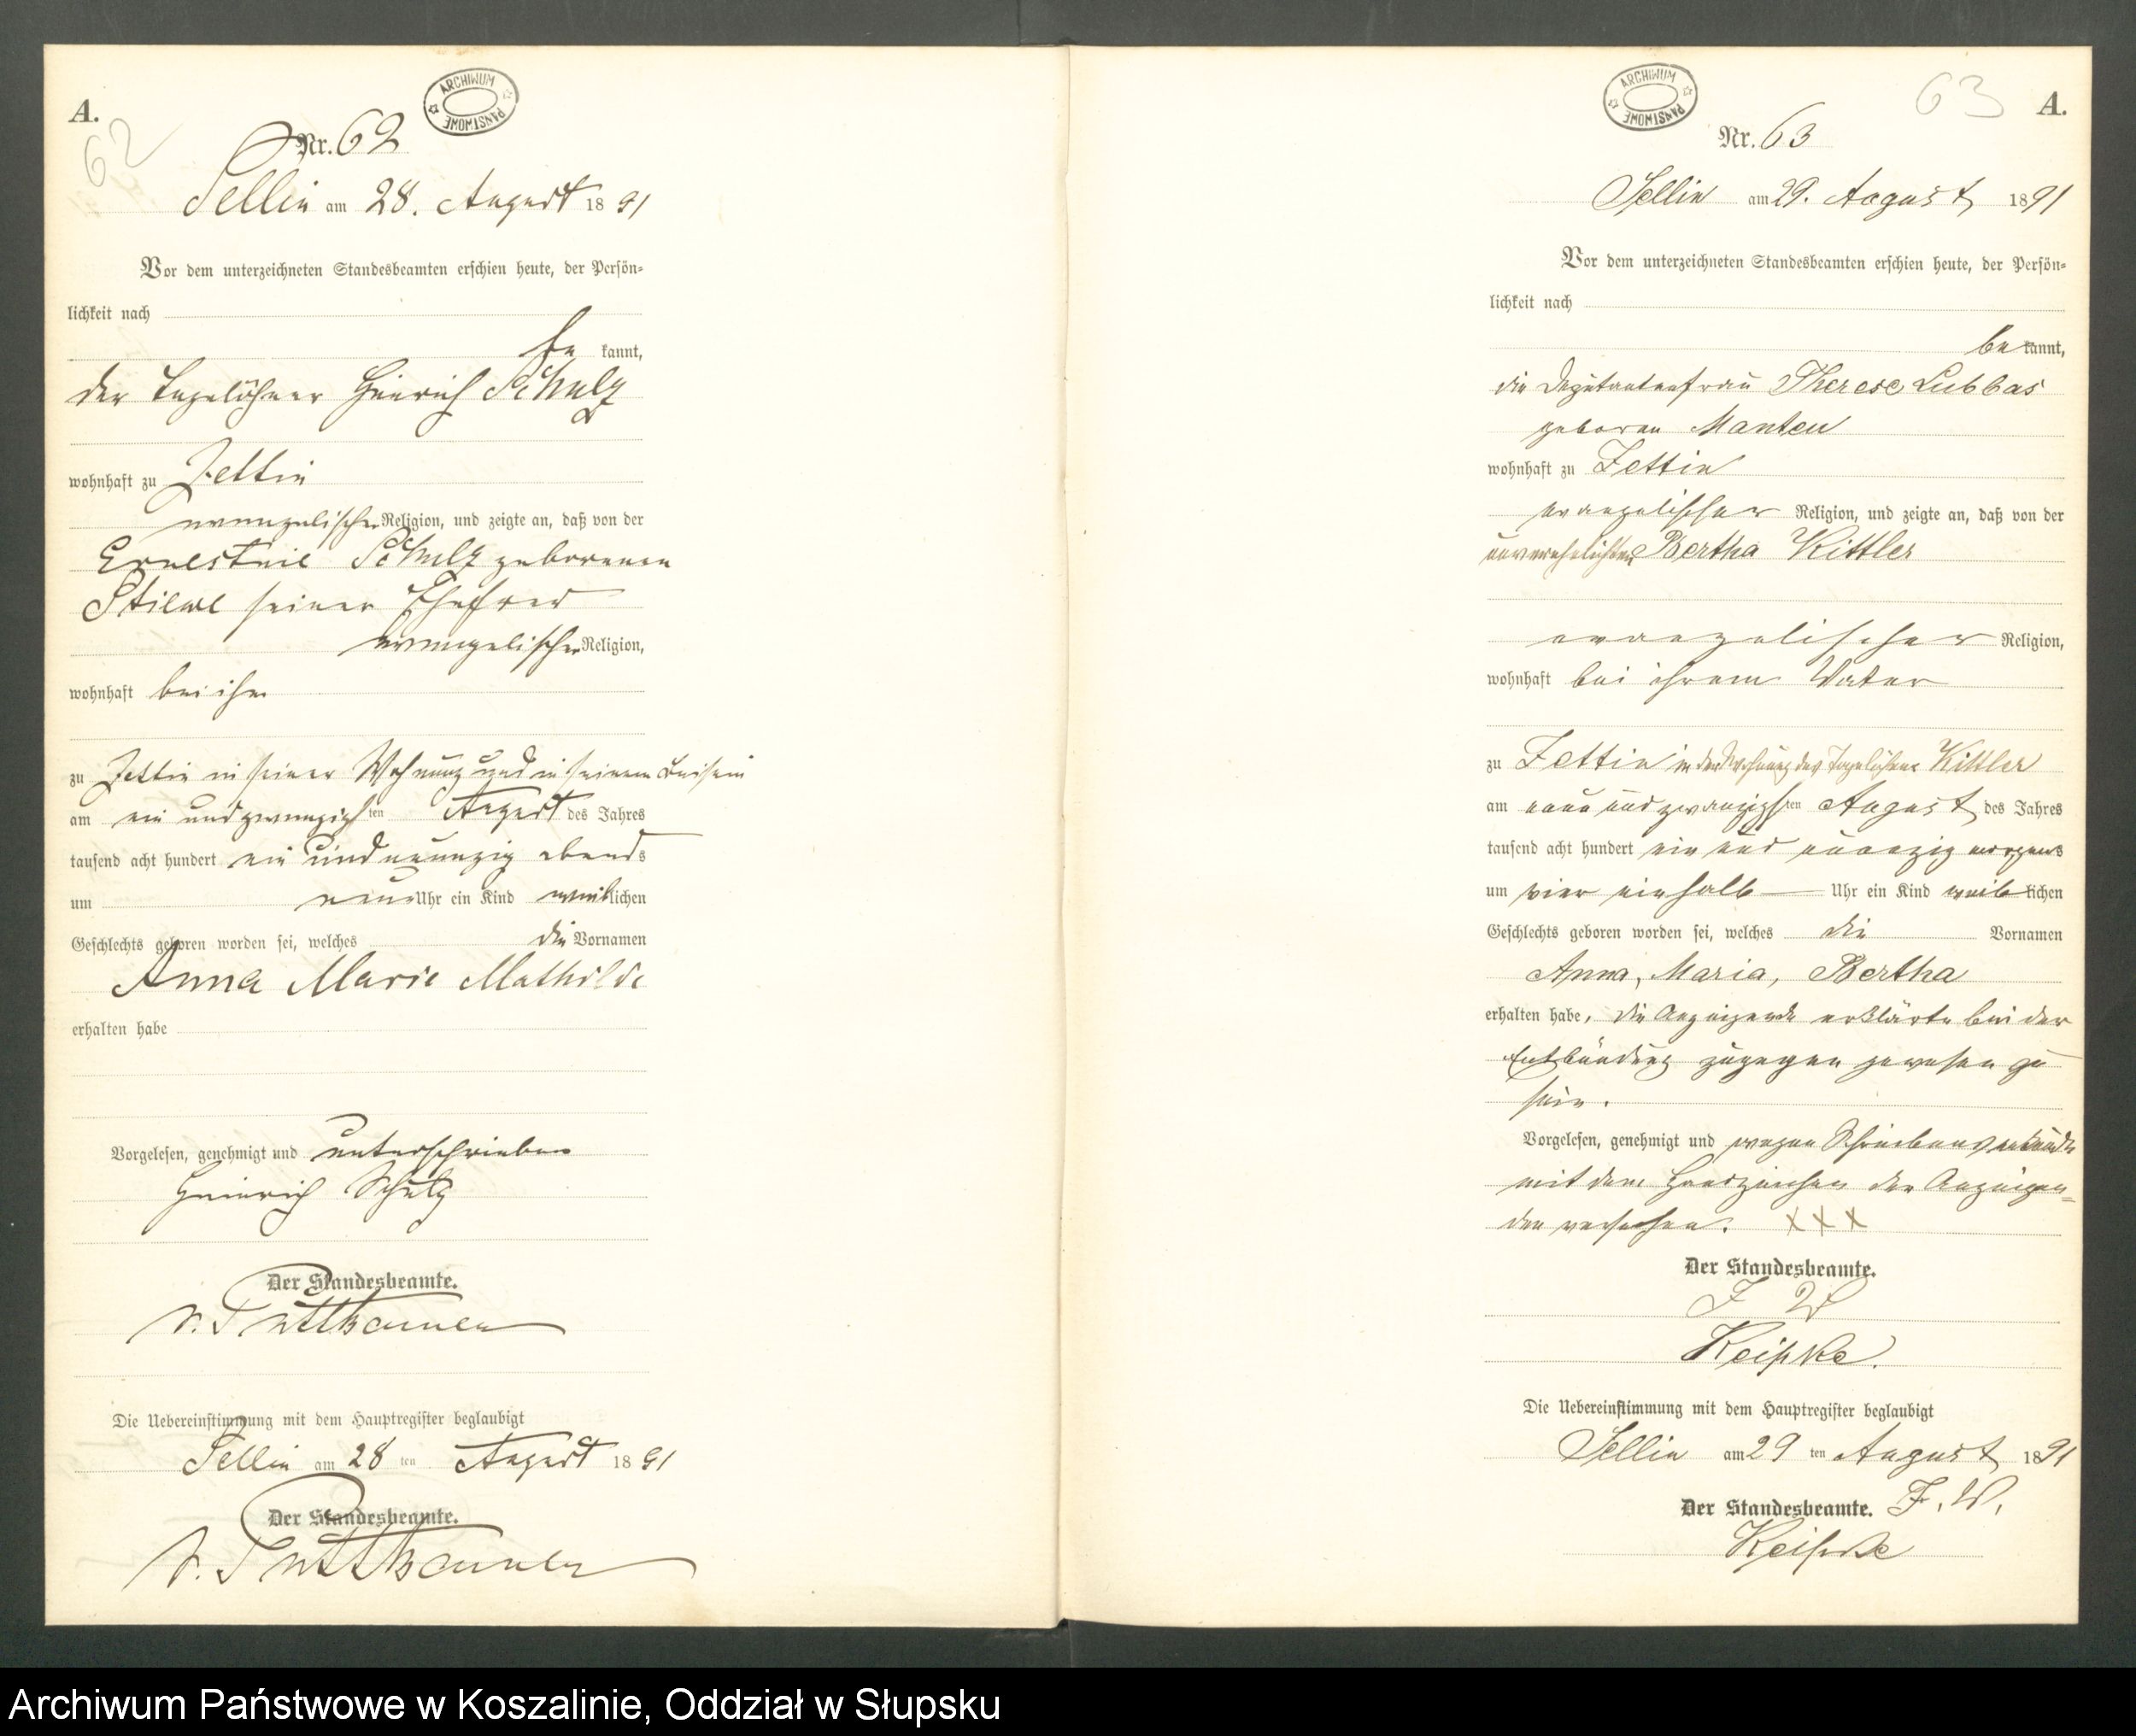 A.
62
ARCHIWUM PAŃSTWOWE
Nr. 62
Sellin am 28. August 1891
Vor dem unterzeichneten Standesbeamten erschien heute, der Persön-
lichkeit nach
be kannt,
der Tagelöhner Heinrich Schulz
wohnhaft zu Zettin
evangelischer Religion, und zeigte an, daß von der
Ernestine Schulz geborenen
Stiewe seiner Ehefrau
evangelischer Religion,
wohnhaft bei ihm
zu Zettin in seiner Wohnung und in seinem Beisein
am ein und zwanzigsten August des Jahres
tausend acht hundert ein und neunzig abends
um neun Uhr ein Kind weiblichen
Geschlechts geboren worden sei, welches die Vornamen
Anna Marie Mathilde
erhalten habe
Vorgelesen, genehmigt und unterschrieben
Heinrich Schulz
Der Standesbeamte.
v. Puttkamer
Die Uebereinstimmung mit dem Hauptregister beglaubigt
Sellin am 28 ten August 1891
Der Standesbeamte.
v. Puttkamer
63
A.
ARCHIWUM PAŃSTWOWE
Nr. 63
Sellin am 29. August 1891
Vor dem unterzeichneten Standesbeamten erschien heute, der Persön-
lichkeit nach
be kannt,
die Deputantenfrau Therese Lubbas
geboren Manteu
wohnhaft zu Zettin
evangelischer Religion, und zeigte an, daß von der
unverehelichten Bertha Kittler
evangelischer Religion,
wohnhaft bei ihrem Vater
zu Zettin in der Wohnung des Tagelöhner Kittler
am neun und zwanzigsten August des Jahres
tausend acht hundert ein und neunzig morgens
um vier einhalb Uhr ein Kind weiblichen
Geschlechts geboren worden sei, welches die Vornamen
Anna, Maria, Bertha
erhalten habe, die Anzeigende erklärte bei der
Entbindung zugegen gewesen zu
sein.
Vorgelesen, genehmigt und wegen Schreibensunkunde
mit dem Handzeichen der Anzeigen=
den versehen. XXX
Der Standesbeamte.
I W
Keipke.
Die Uebereinstimmung mit dem Hauptregister beglaubigt
Sellin am 29 ten August 1891
Der Standesbeamte. I. W.
Keipke
Archiwum Państwowe w Koszalinie, Oddział w Słupsku